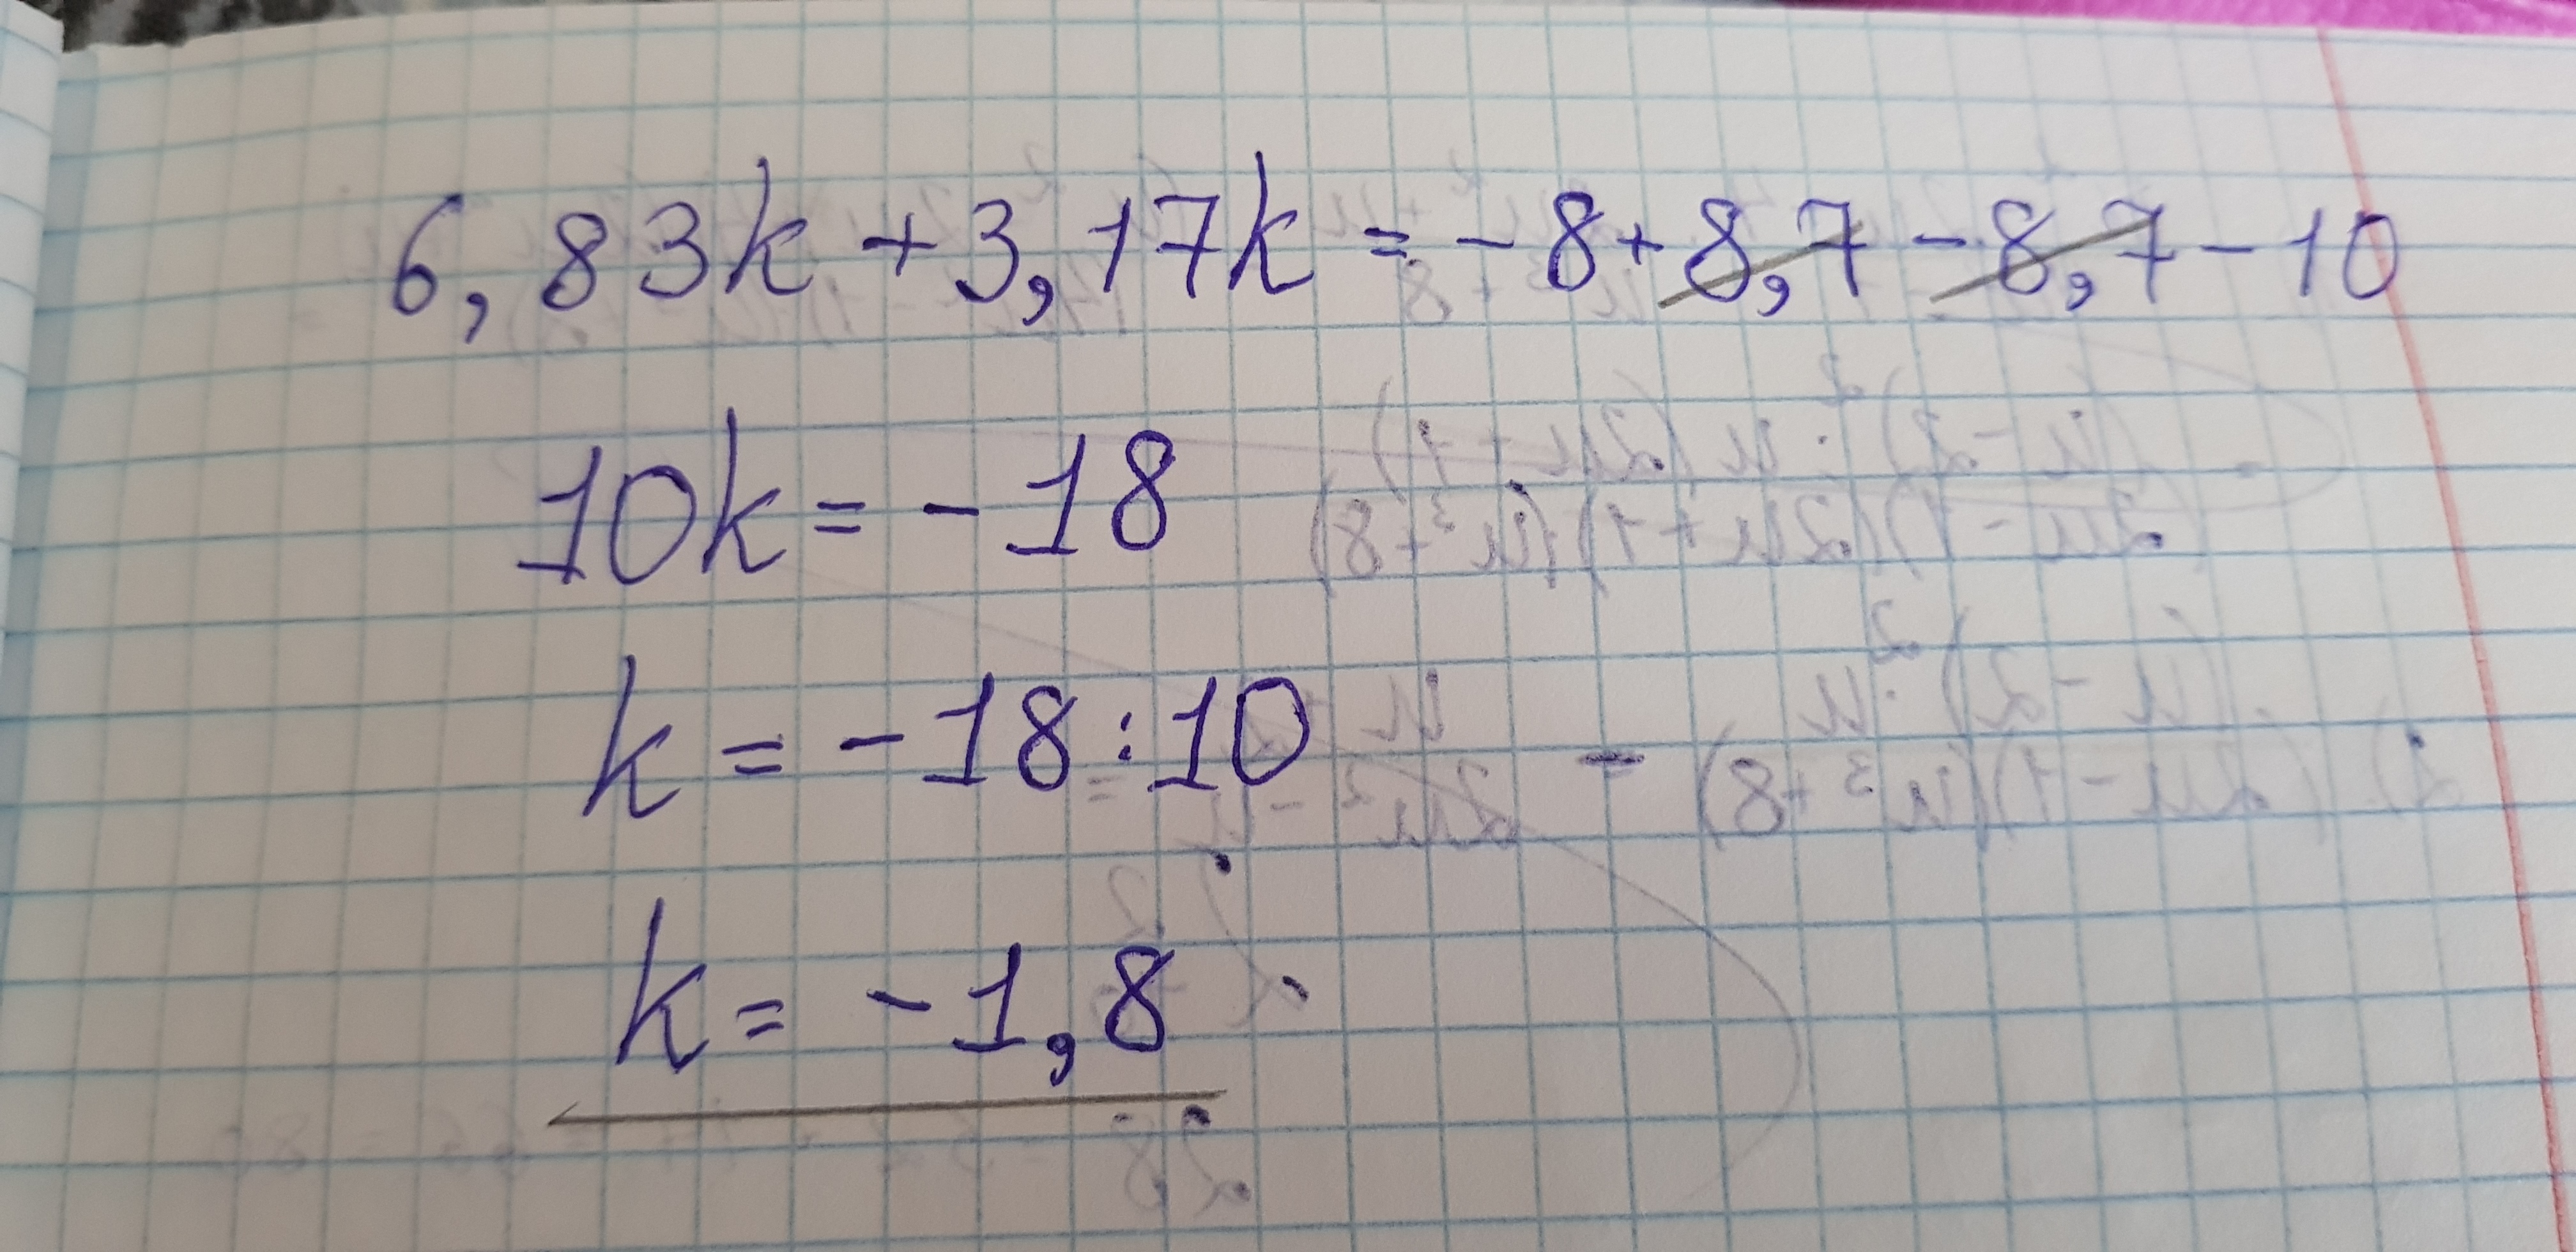 6,83k + 3,17k = -8 + 8,7 - 8,7 - 10
10k = -18
k = -18 : 10
k = -1,8